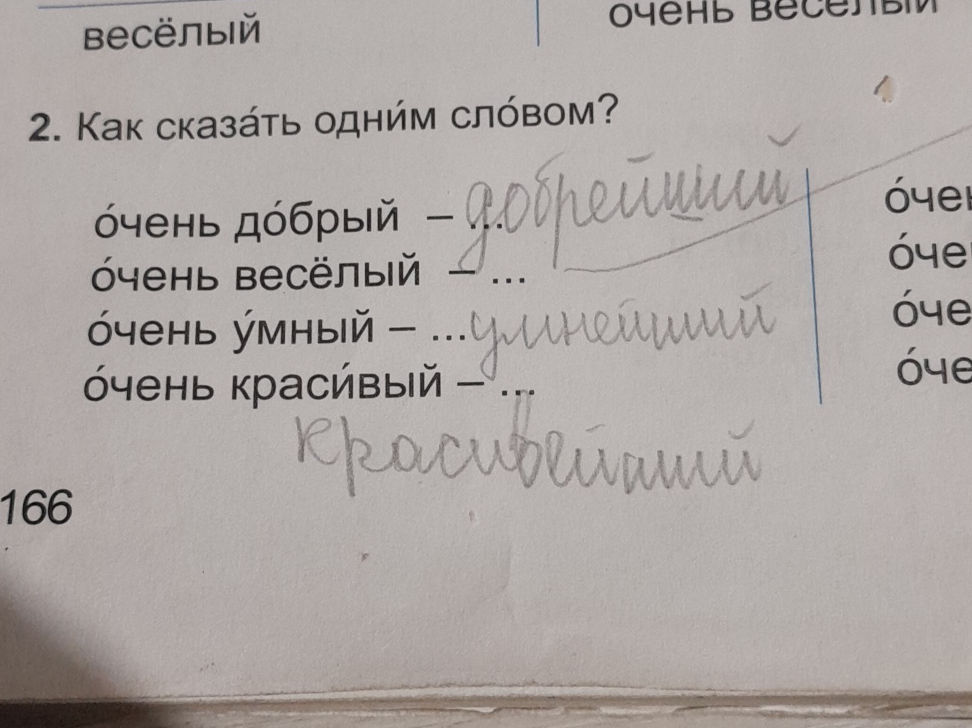 весёлый
очень весёлый
2. Как сказа́ть одни́м сло́вом?
о́чень до́брый – ... добрейший
о́чень весёлый – ...
о́чень у́мный – ... умнейший
о́чень краси́вый – ...
красивейший
166